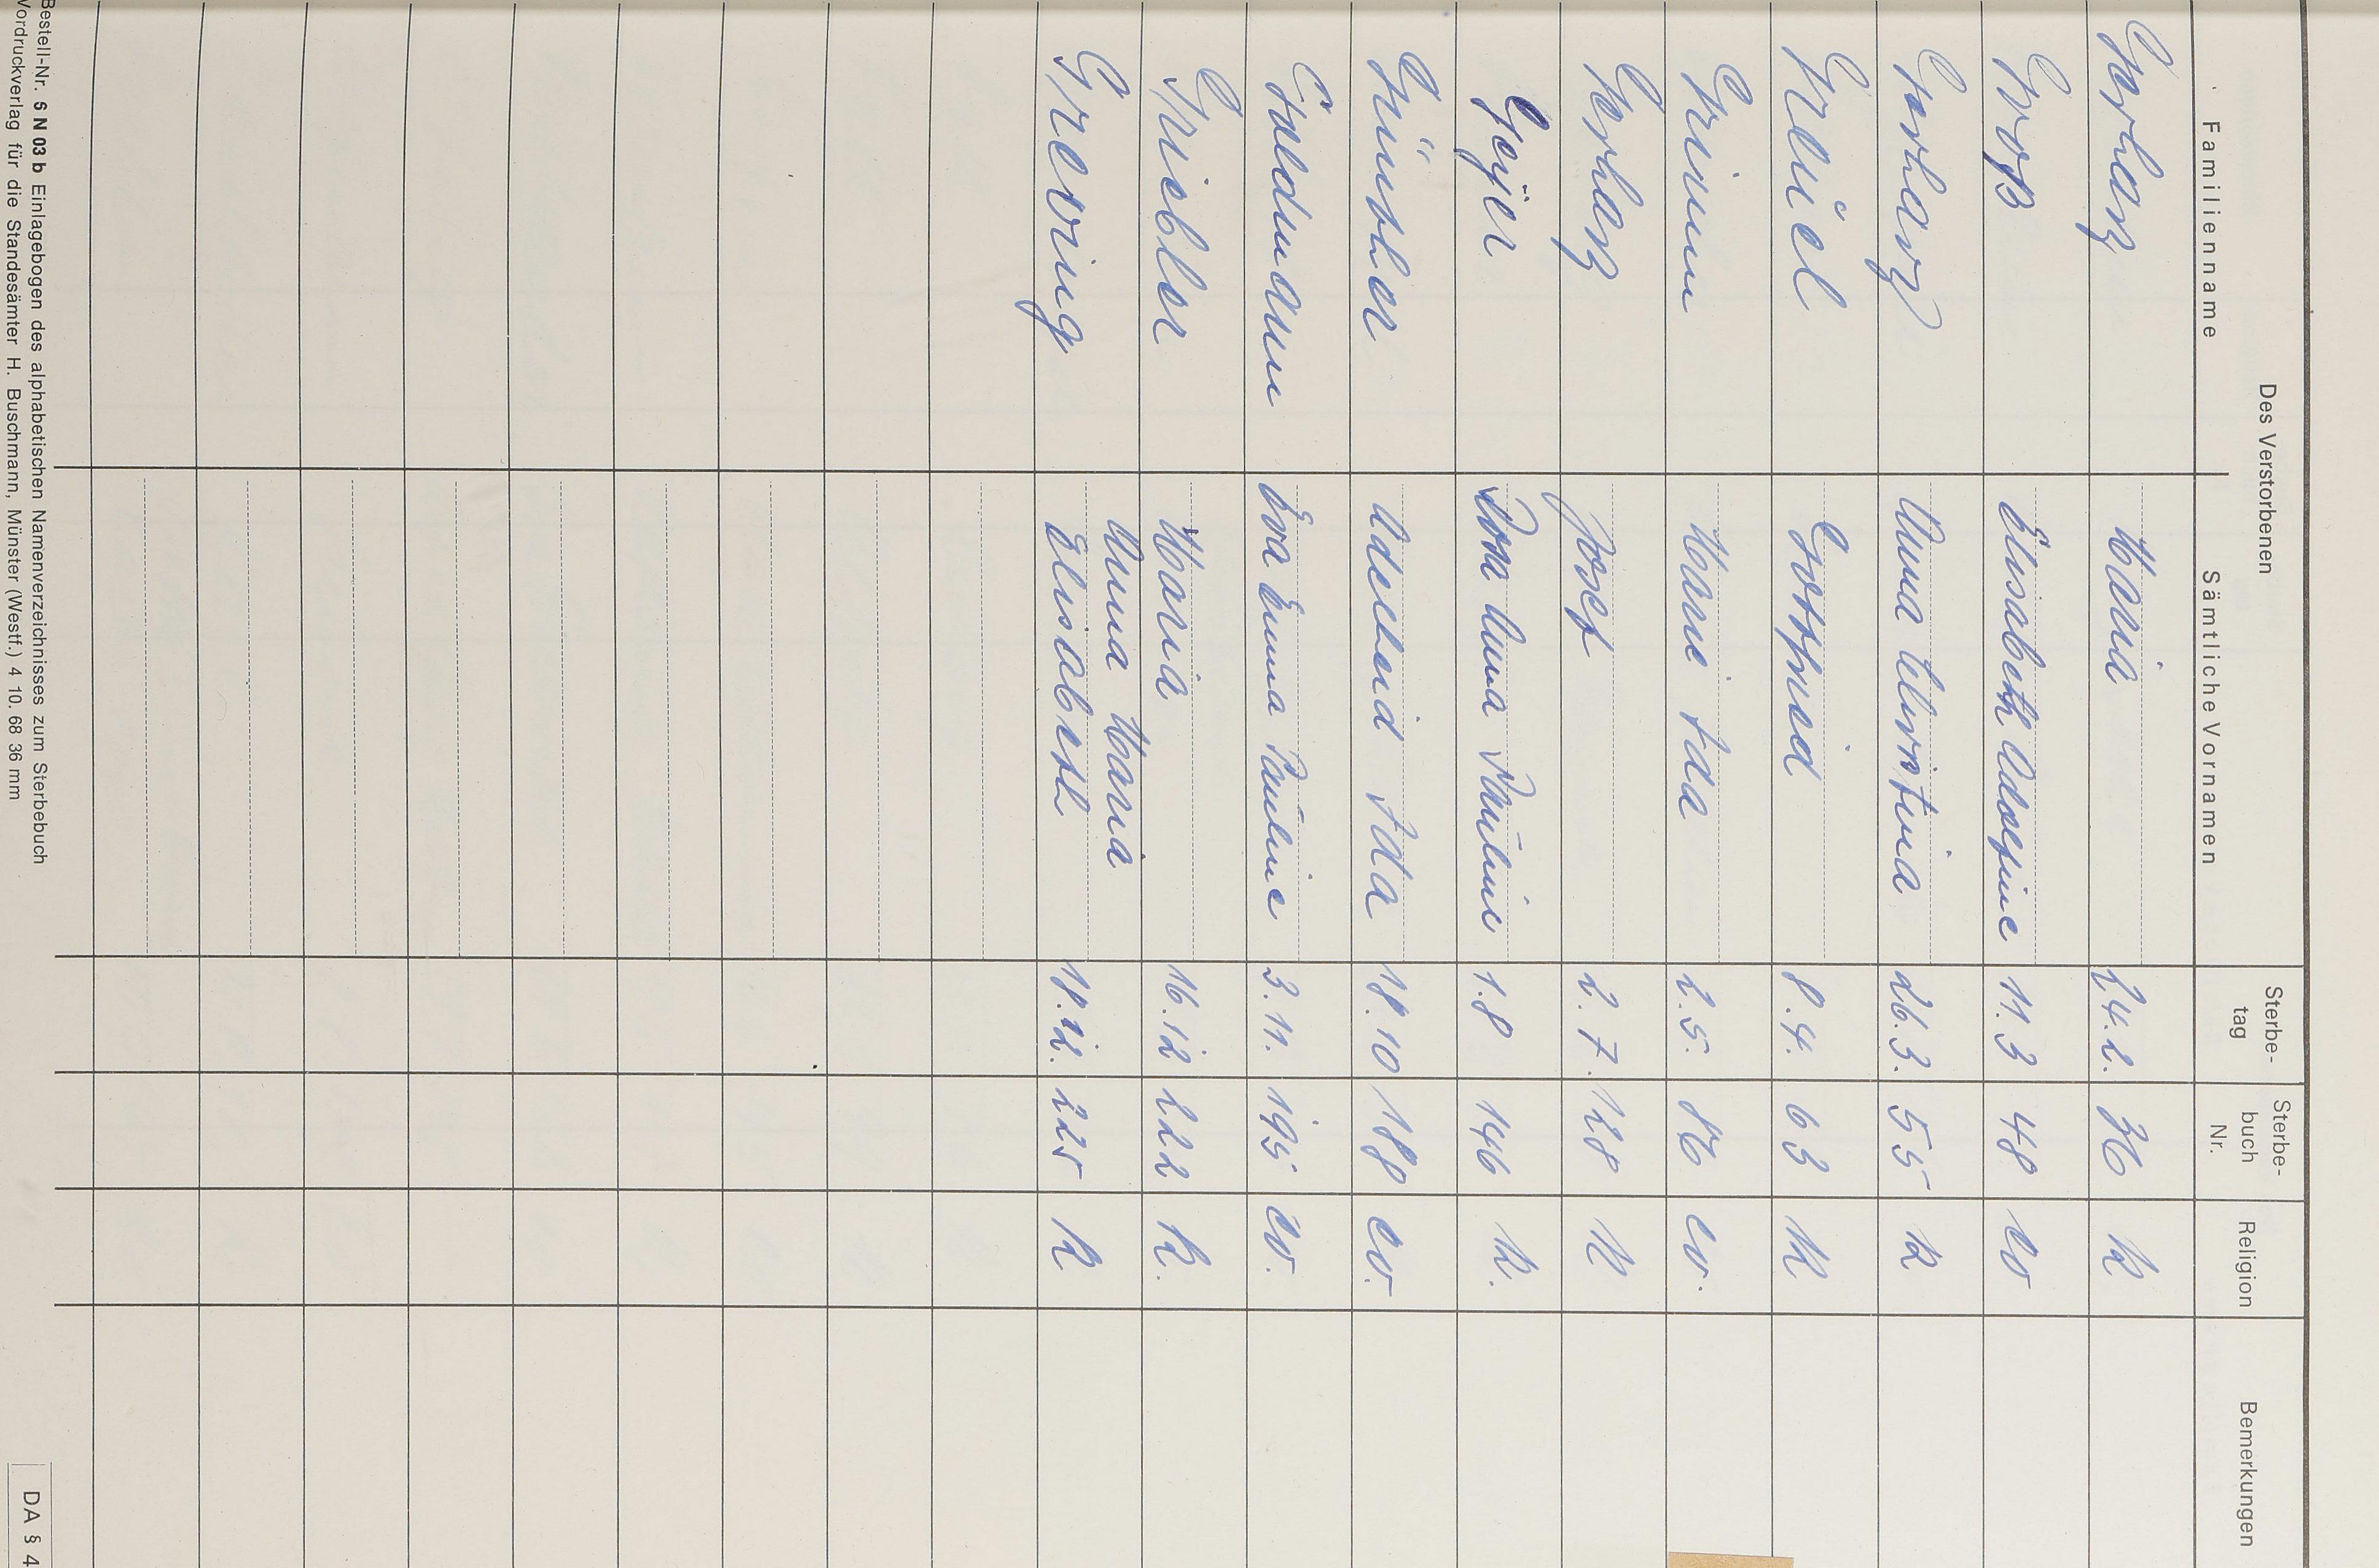 Des Verstorbenen
Familienname Sämtliche Vornamen Sterbe-tag Sterbe-buch Nr. Religion Bemerkungen
Gerharz Maria 24.2. 36 k
Groß Elisabeth 11.3 48 ev
Gerharz Anna 26.3. 55 k
Greuel Gottfried 8.4. 63 k
Grimm Marie Ida 2.5. 86 ev.
Gerharz Josef 2.7. 128 k
Geyer Rosa Anna Pauline 1.8 146 k.
Günther Adelheid Ida 18.10 188 ev.
Galdmann Eva Emma Pauline 3.11. 195 ev.
Griebler Maria 16.12 222 k.
Anna Maria
Greving Elisabeth 18.12. 225 k
Bestell-Nr. 6 N 03 b Einlagebogen des alphabetischen Namenverzeichnisses zum Sterbebuch
Vordruckverlag für die Standesämter H. Buschmann, Münster (Westf.) 4 10. 68 36 mm
DA § 4